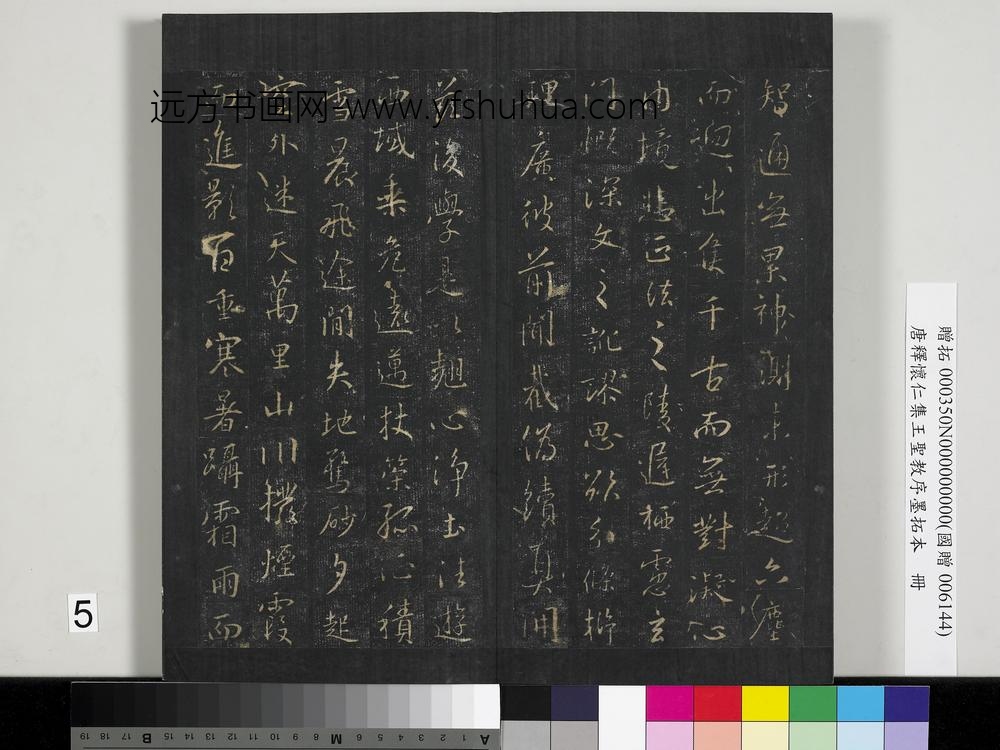 智通無累神測未形超六塵
而迥出隻千古而無對凝心
內境悲正法之陵遲栖慮玄
門慨深文之訛謬思欲分條析
理廣彼前聞截偽續真開
茲後學是以翹心淨土法遊
西域乘危遠邁杖策孤征積
雪晨飛途間失地驚砂夕起
空外迷天萬里山川撥煙霞
而進影百重寒暑躡霜雨而
远方书画网 www.yfshuhua.com
贈拓 000350N000000000(國贈 006144)
唐釋懷仁集王聖教序墨拓本 冊
5
19 18 17 16 15 14 13 12 11 10 9 8 7 6 5 4 3 2 1
B M A